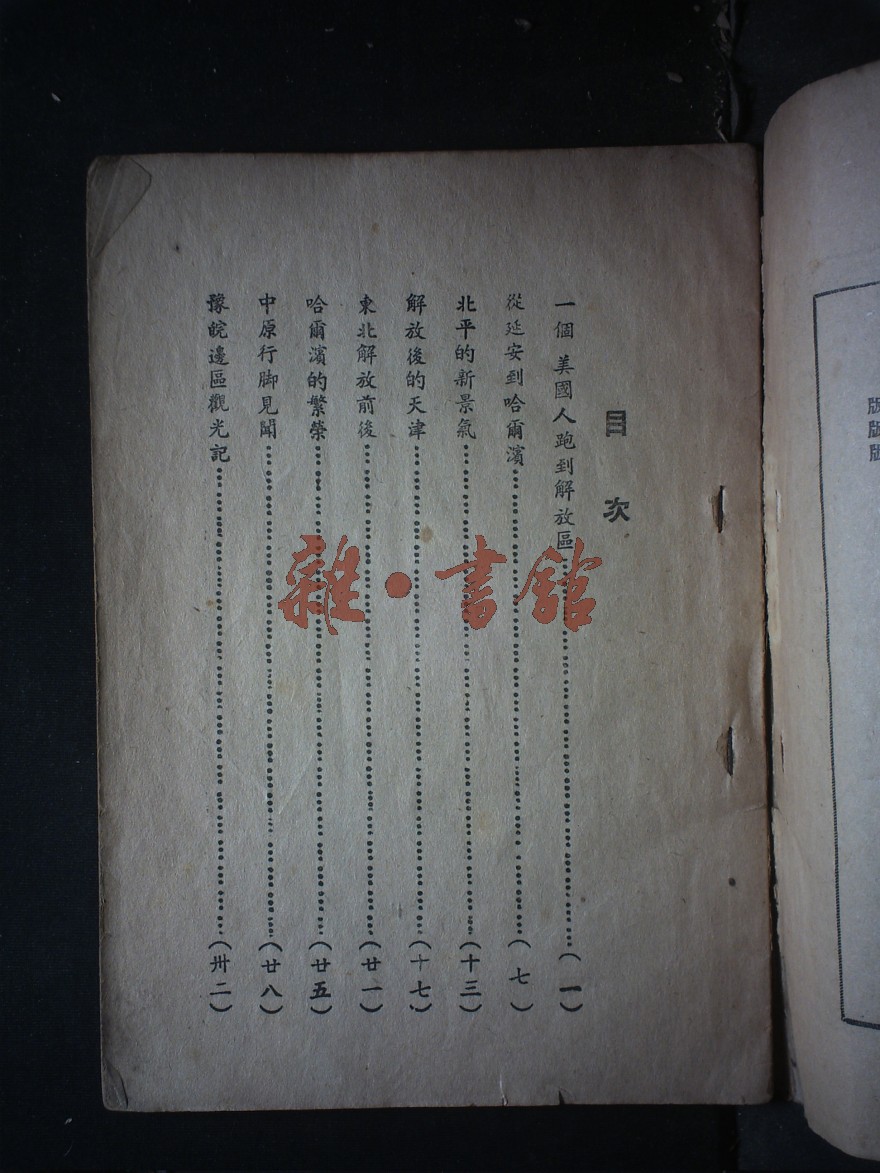 目次
一個美國人跑到解放區……(一)
從延安到哈爾濱……(七)
北平的新景氣……(十三)
解放後的天津……(十七)
東北解放前後……(廿一)
哈爾濱的繁榮……(廿五)
中原行脚見聞……(廿八)
豫皖邊區觀光記……(卅二)
雜·書館
版
版
版